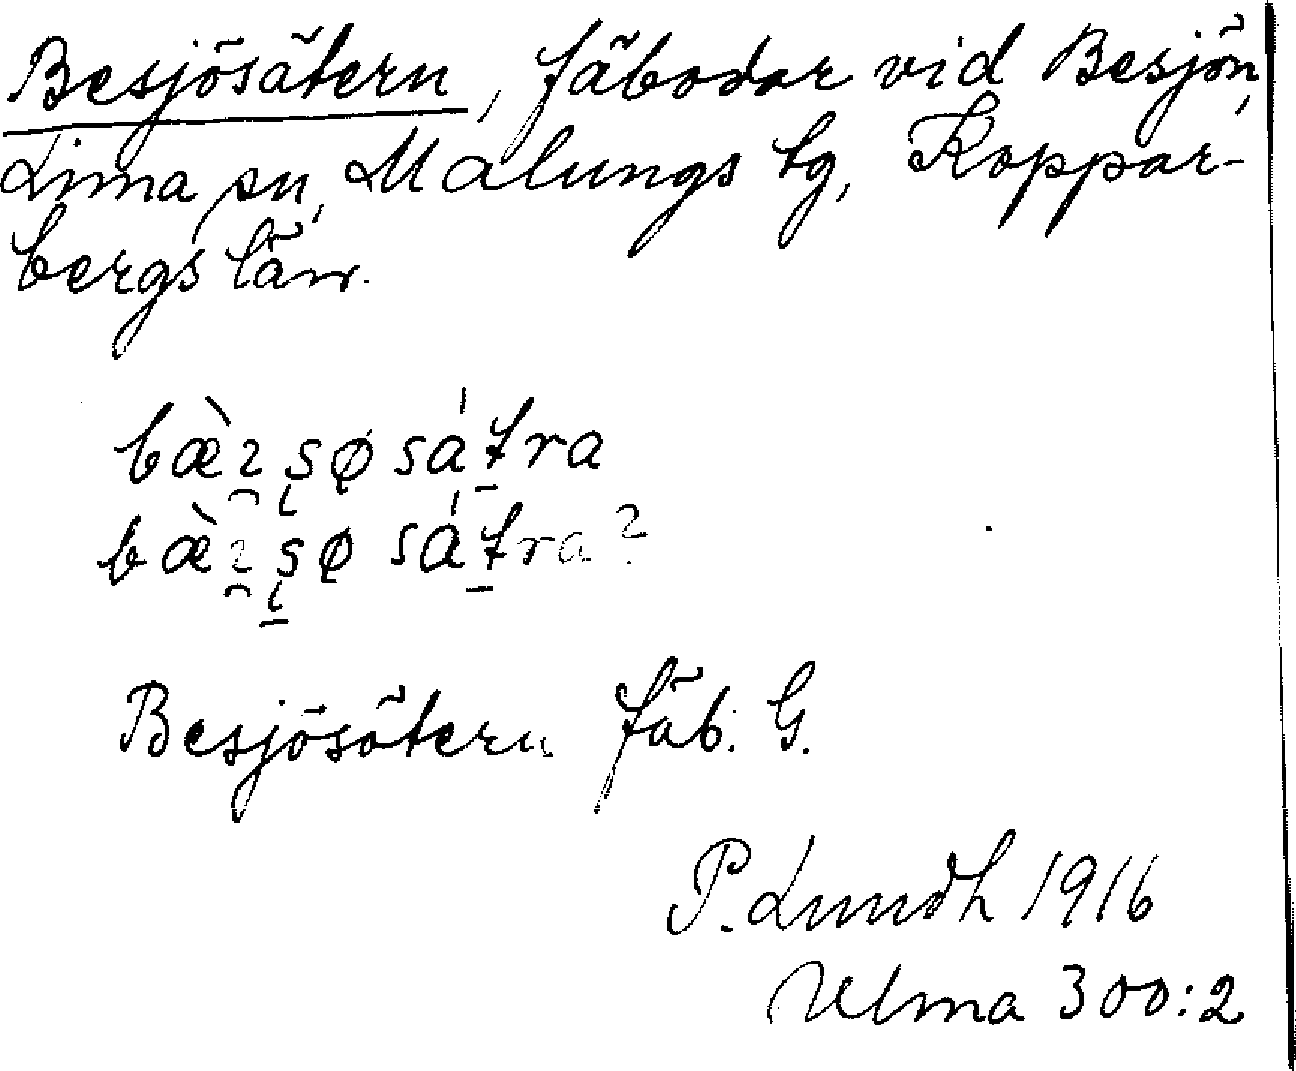 Besjösätern, fäbodar vid Besjön,
Lima sn, Malungs tg, Koppar-
bergs län.
bæ̀ꝛ̯ʂøsátra
bæ̀ꝛ̯ʂøsátra?
Besjösätern fäb. G.
P. Lundh 1916
Ulma 300:2